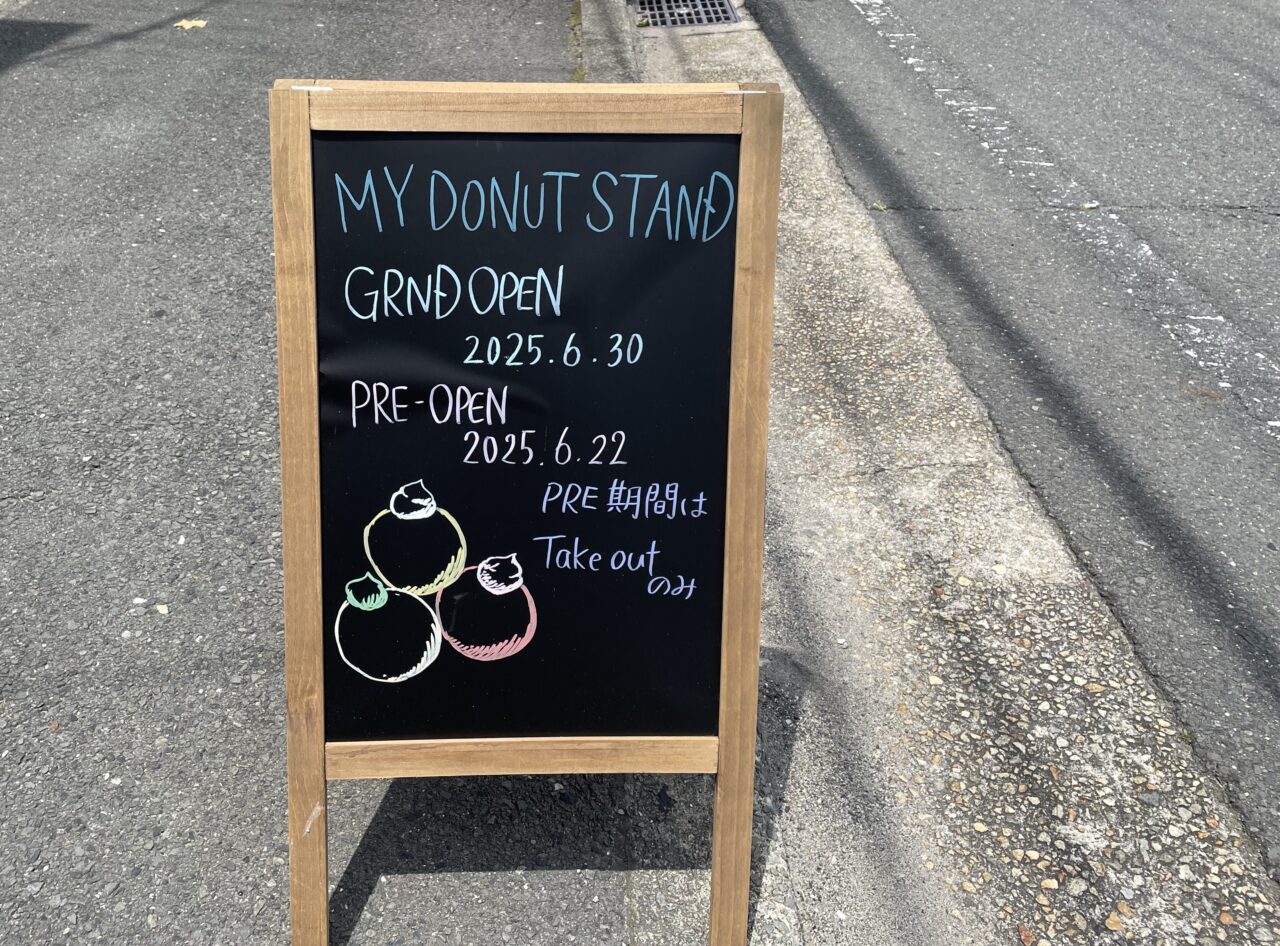 MY DONUT STAND
GRND OPEN
2025.6.30
PRE-OPEN
2025.6.22
PRE 期間は
Take out
のみ